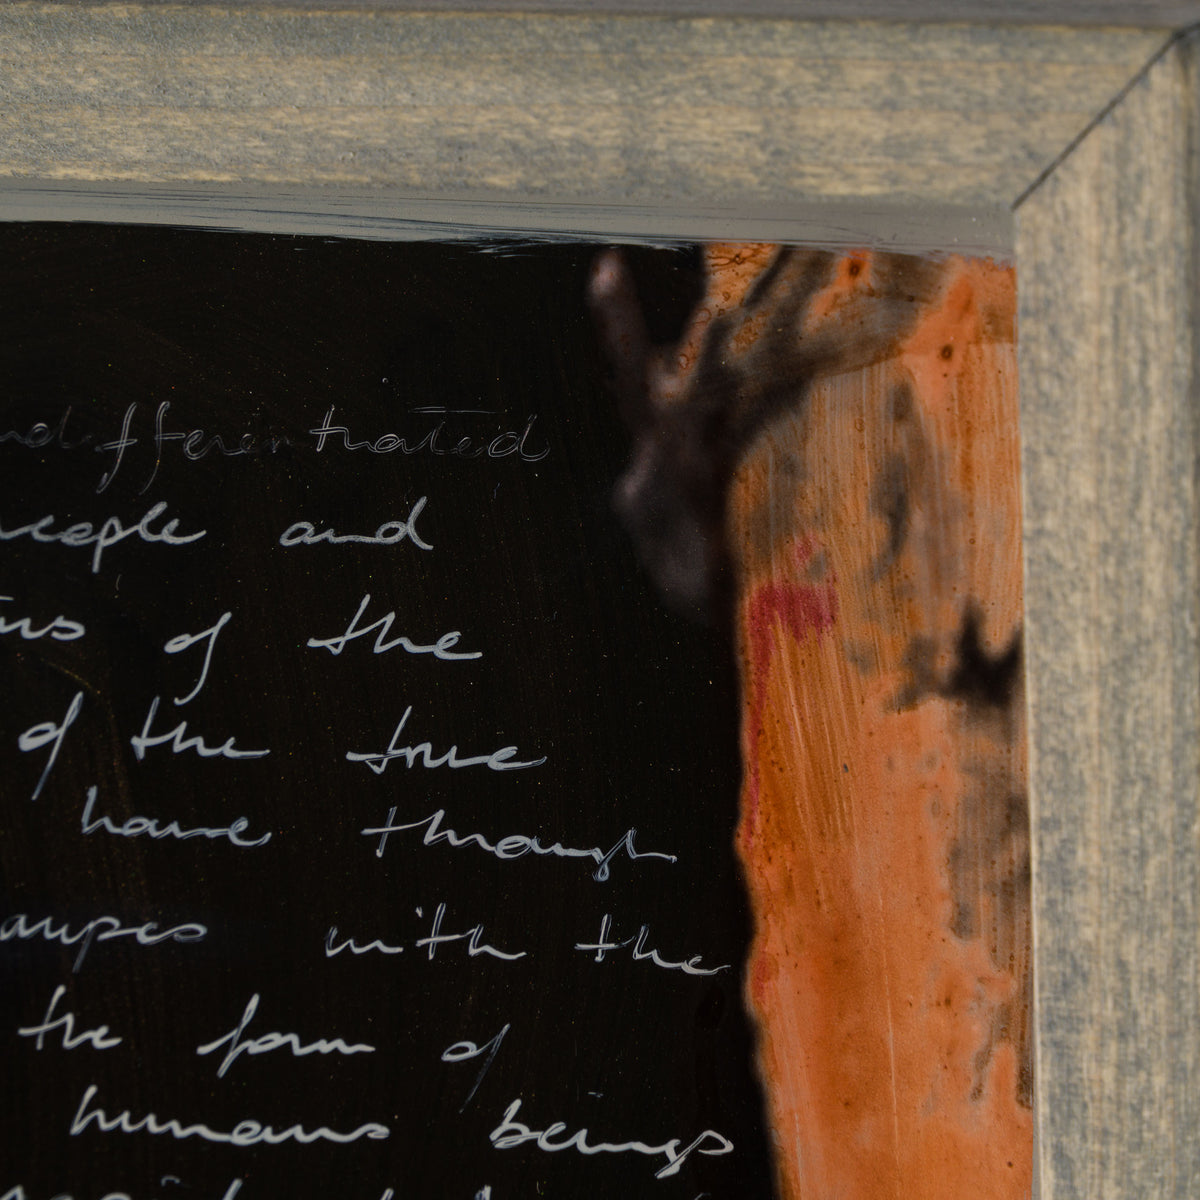 undifferentiated
people and
of the
of the true
have through
with the
the form of
humans beings